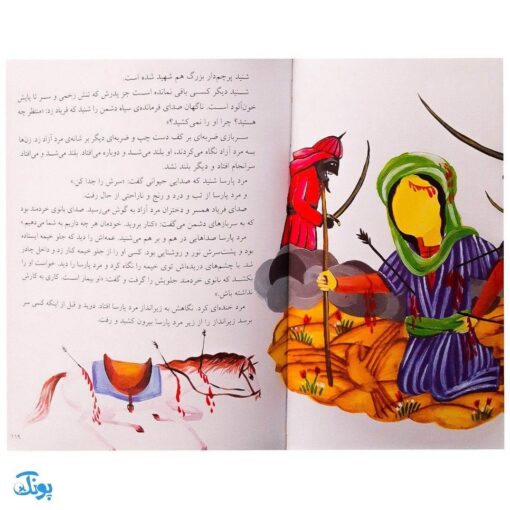 شنید پرچم‌دار بزرگ هم شهید شده است.
شنید دیگر کسی باقی نمانده است جز پدرش که تنش زخمی و سر تا پایش
خون‌آلود است. ناگهان صدای فرمانده‌ی سپاه دشمن را شنید که فریاد زد: «منتظر چه
هستید؟ چرا او را نمی‌کشید؟»
سربازی ضربه‌ای بر کف دست چپ و ضربه‌ای دیگر بر شانه‌ی مرد آزاد زد. زن‌ها
به مرد آزاد نگاه می‌کردند، او بلند می‌شد و دوباره می‌افتاد. بلند می‌شد و می‌افتاد.
سرانجام افتاد و دیگر بلند نشد.
مرد پارسا شنید که صدایی حیوانی گفت: «سرش را جدا کن.»
و مرد پارسا از تب و درد و رنج و ناراحتی از حال رفت.
صدای فریاد همسر و دختران مرد آزاد به گوش می‌رسید. صدای بانوی خردمند بود
که به سربازهای دشمن می‌گفت: «کنار بروید. خودمان هر چه داریم به شما می‌دهیم.»
مرد پارسا صداهایی در هم و بر هم می‌شنید. عمه‌اش را دید که جلو خیمه ایستاده
بود. پشت‌سرش نور و روشنایی بود. کسی او را از جلو خیمه کنار زد و داخل چادر
شد. با چشم‌های دریده‌اش توی خیمه را نگاه کرد و مرد پارسا را دید. خواست او را
که بانوی خردمند جلویش را گرفت و گفت: «او بیمار است. کاری به کارش
نداشته باش.»
مرد خنده‌ای کرد. نگاهش به زیرانداز مرد پارسا افتاد. دوید و قبل از اینکه کسی سر
برسد زیرانداز را از زیر مرد پارسا بیرون کشید و رفت.
۱۱۹
پونک